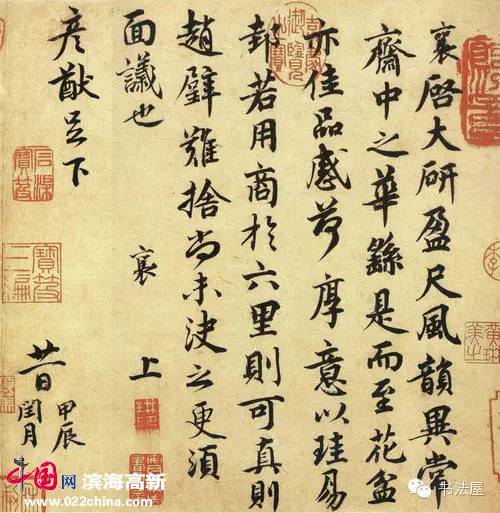 襄啓大研盈尺風韻異常
齋中之華繇是而至花盆
亦佳品感荷厚意以珪易
邽若用商於六里則可真則
趙璧難捨尚未決之更須
面議也 襄 上
彥猷足下
廿一日 甲辰
閏月
中国网 滨海高新
www.022china.com
书法屋